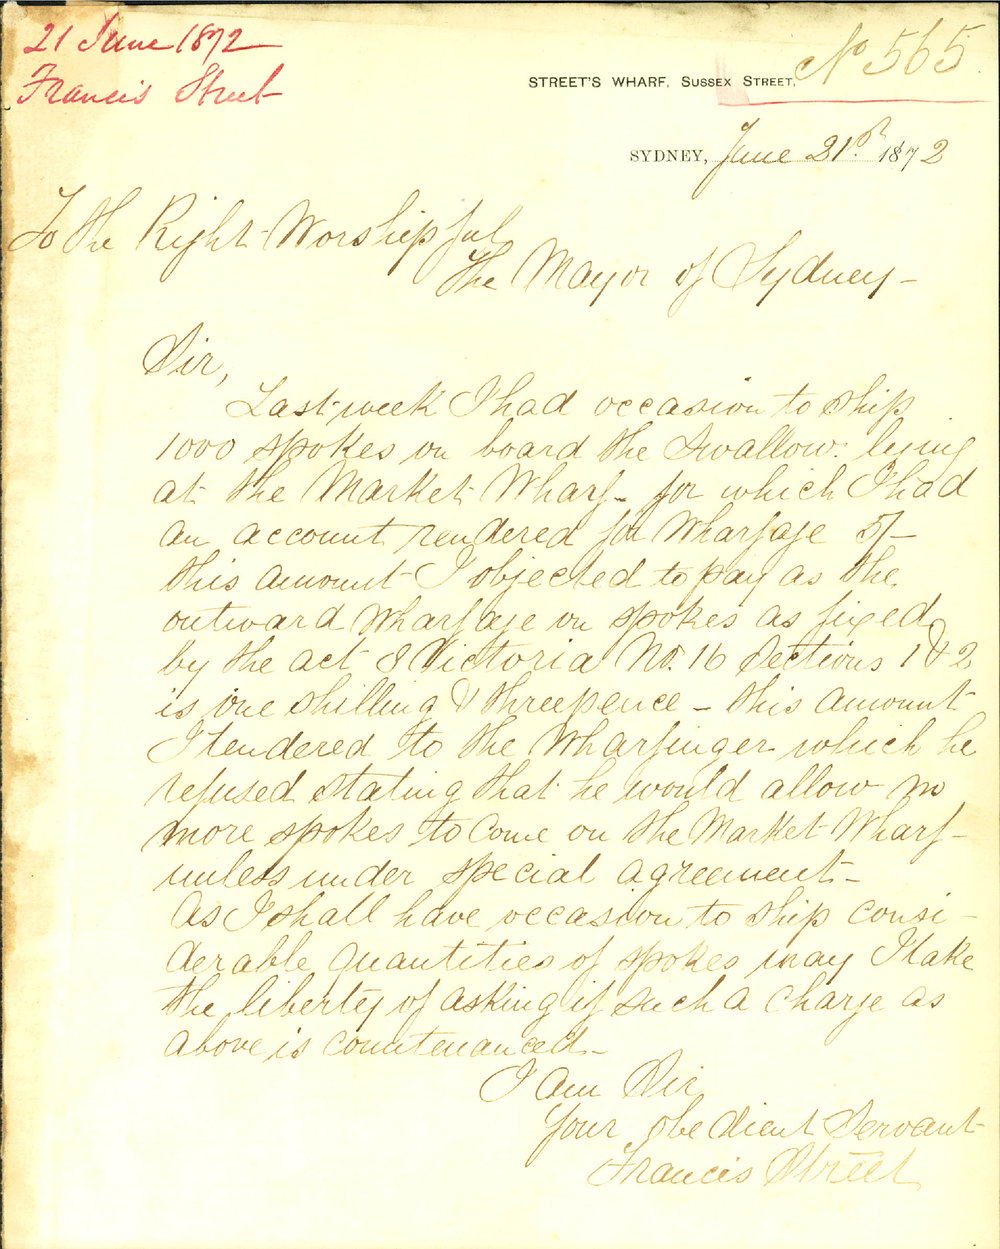 21 June 1872
Francis Street
No 565
STREET'S WHARF, SUSSEX STREET,
SYDNEY, June 21st 1872
To the Right Worshipful
The Mayor of Sydney -
Sir,
Last week I had occasion to ship
1000 spokes on board the Swallow lying
at the Market Wharf - for which I had
an account rendered for Wharfage 5/-
this amount I objected to pay as the
outward Wharfage on spokes as fixed
by the act 8 Victoria No. 16 Sections 1 & 2
is one shilling & threepence - this amount
I tendered to the Wharfinger which he
refused stating that he would allow no
more spokes to come on the Market Wharf
unless under special agreement -
As I shall have occasion to ship consi-
derable quantities of spokes may I take
the liberty of asking if such a charge as
above is countenanced -
I am Sir
Your obedient Servant
Francis Street